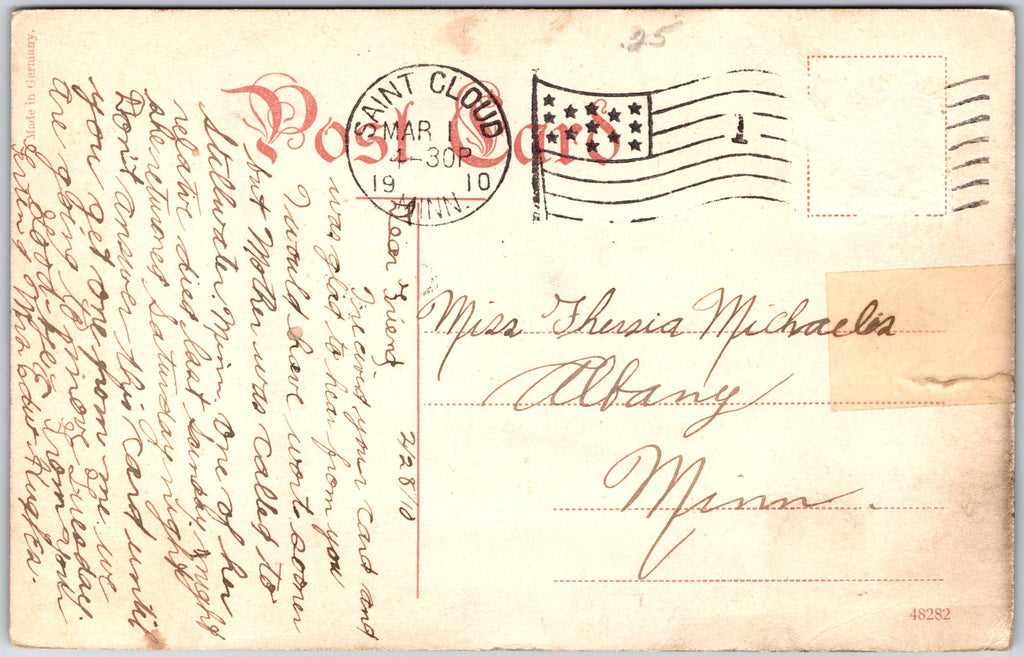 .25
Made in Germany.
Post Card
SAINT CLOUD
MAR 1
4-30P
19 10
MINN.
1
Dear Friend 2/28/10
Received your card and
was glad to hear from you
I would have worte sooner
but Mother was called to
Stillwater, Minn. One of her
relative died last Sunday night
she returned Saturday night
Don't answer this card until
you get one from me we
are going to move Tuesday.
Good-bye From your
Friend
Miss Thersia Michaelis
Albany
Minn.
48282